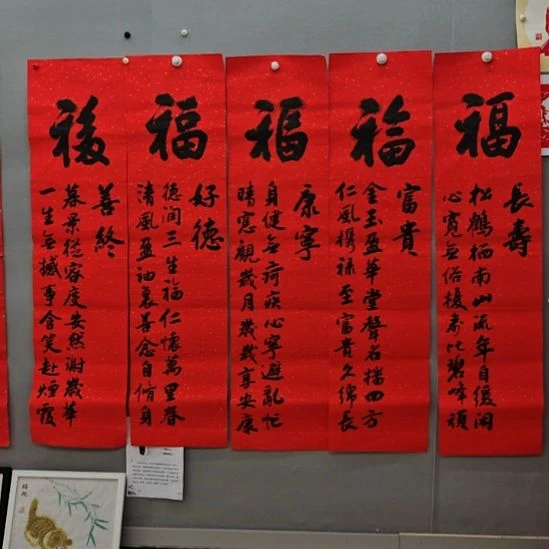 福
長壽
松鶴栖南山流年自缓闲
心宽無俗擾寿比碧峰頑
福
富貴
金玉盈華堂聲名播四方
仁風携禄至富貴久绵長
福
康寧
身健無疴疾心寧避亂忙
晴窓觀歲月歲歲享安康
福
好德
德潤三生福仁懷萬里春
清風盈袖裏善念自脩身
福
善終
暮景從容度安然謝歲華
一生無憾事含笑赴煙霞